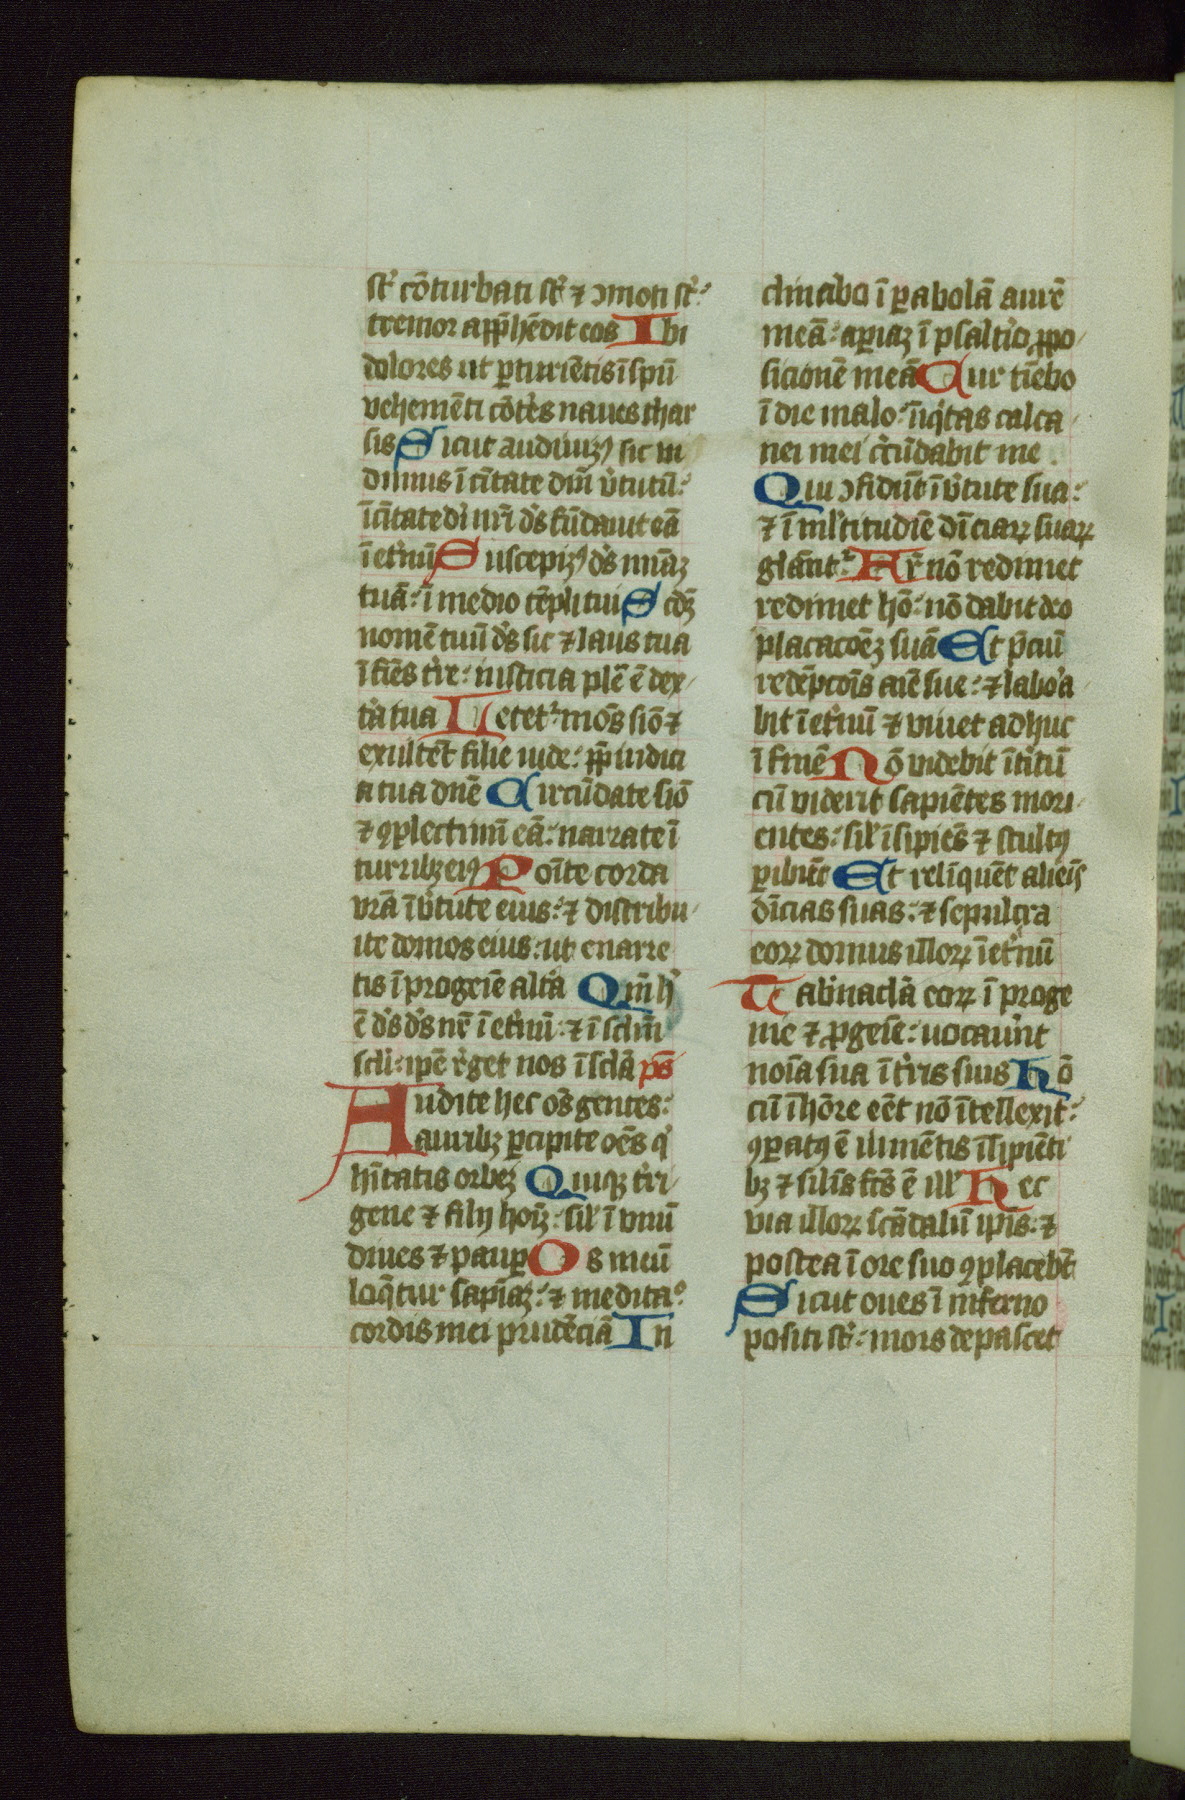 st᷑ cōturbati st᷑ ⁊ ↄmoti st᷑:
tremor app̄hēdit eos Ibi
dolores ut ꝑturiētis ī spū
vehemēti cōt᷑es naues thar
sis Sicut audiuiꝫꝰ sic ui
dimus ī ciītate dn̄i v᷑tutū:
ī ciītate dī nr̄i ds̄ fūdauit eā
ī et᷑nū Suscepiꝫꝰ ds̄ mīaꝫ
tuā: ī medio tēpli tui Scdꝫ
nomē tuū ds̄ sic ⁊ laus tua
ī fiēs t᷑re: iusticia plē ē dex
t᷑a tua Letet᷑ mōs siō ⁊
exultēt filie iude: ꝓp̄ iudici
a tua dn̄e Circūdate siō
⁊ ꝯplectimī eā: narrate ī
turribꝫ eiꝰ Poīte corda
vr̄a ī v᷑tute eius: ⁊ distribu
ite domos eius: ut enarre
tis ī progeīe alt᷑a Qm̄ hꝰ
ē ds̄ ds̄ nr̄ ī et᷑nū: ⁊ ī sclm̄
scli: ipē r᷑get nos ī sclā ps̄
Audite hec ōs gentes:
auribꝫ ꝑcipite oēs qͥ
hītatis orbeꝫ Quiqꝫ t᷑ri
gene ⁊ filij hoīꝫ: sil᷑ ī vnū
diues ⁊ pauꝑ Os meū
loq̄tur sapīaꝫ: ⁊ meditaᵒ
cordis mei prudēciā In
clinabo ī ꝑabolā aurē
meā: aꝑiaꝫ ī psalt᷑io ꝓpo
sicionē meā Cur tīebo
ī die malo: īiqͥtas calca
nei mei c᷑cūdabit me
Qui ↄfidūt ī v᷑tute sua:
⁊ ī ml᷑titudīe dīciaꝝ suaꝝ
gl᷑ant᷑ Fr̄ nō redimet
redimet hō: nō dabit deo
placacōeꝫ suā Et p̄ciū
redēpcōis aīe sue: ⁊ labo᷑a
bit ī et᷑nū ⁊ viuet adhuc
ī finē Nō videbit īt᷑itū
cū viderit sapiētes mori
entes: sil᷑ īsipiēs ⁊ stultꝰ
ꝑibūt Et relīquēt alieīs
dīcias suas: ⁊ sepulcra
eoꝝ domus illoꝝ ī et᷑nū
Tab᷑nacl᷑a eoꝝ ī proge
nie ⁊ ꝓgeīe: uocau᷑nt
noīa sua ī t᷑ris suis Hō
cū ī hōre eēt nō ītellexit:
ꝯꝑatꝰ ē iumētis īsipiēti
bꝫ ⁊ silīs fcs̄ ē ill᷑ Hec
via illoꝝ scādalū ipīs: ⁊
postea ī ore suo ꝯplacebūt
Sicut oues ī inferno
positi st᷑: mors depascet